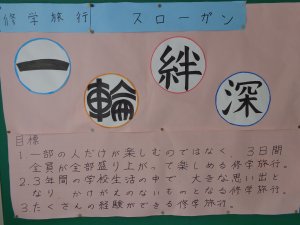 修学旅行 スローガン
一輪絆深
目標
1.一部の人だけが楽しむのではなく 3日間
全員が全部盛り上がって楽しめる修学旅行。
2.3年間の学校生活の中で 大きな思い出と
なり かけがえのないものとなる修学旅行。
3.たくさんの経験ができる修学旅行。